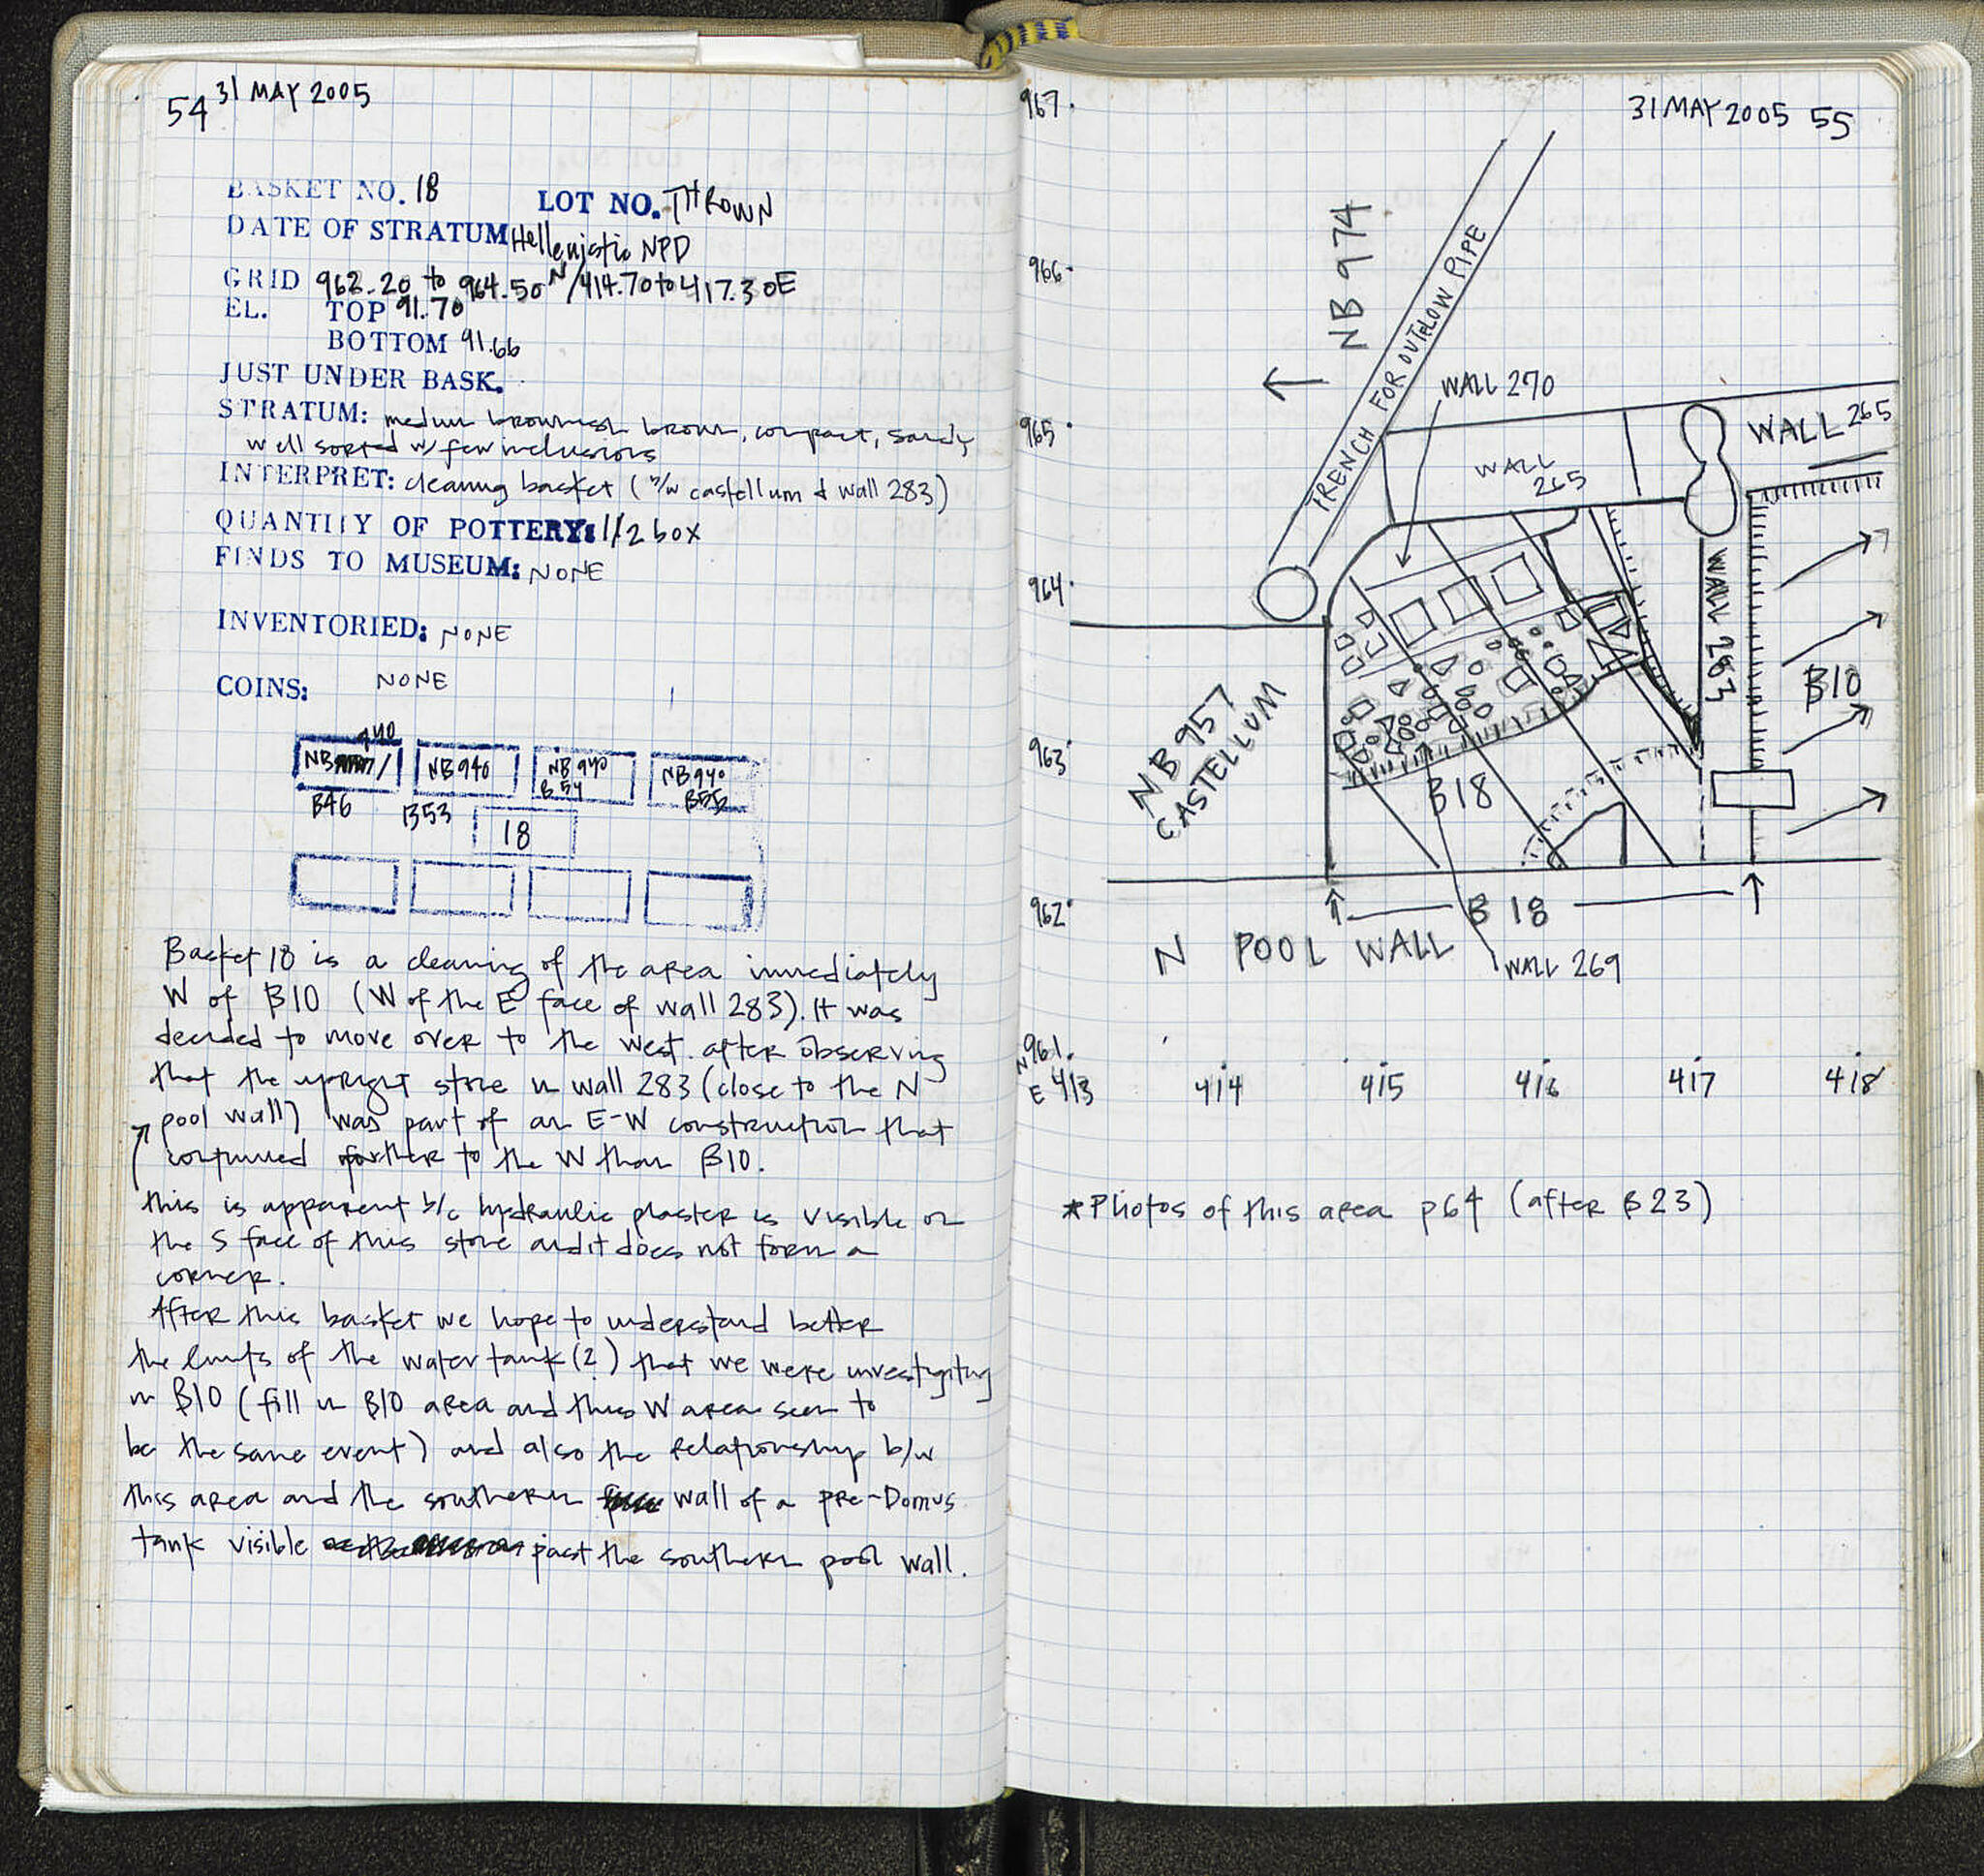 54 31 MAY 2005
BASKET NO. 18 LOT NO. THROWN
DATE OF STRATUM Hellenistic NPD
GRID 962.20 to 964.50 N/414.70 to 417.30E
EL. TOP 91.70
BOTTOM 91.66
JUST UNDER BASK.
STRATUM: medium brownish brown, compact, sandy
well sorted w/ few inclusions
INTERPRET: cleaning basket (b/w castellum & wall 283)
QUANTITY OF POTTERY: 1/2 box
FINDS TO MUSEUM: NONE
INVENTORIED: NONE
COINS: NONE
940
NB NB 940 NB 940 NB 940
B46 B53 B54 B55
18
Basket 18 is a cleaning of the area immediately
W of B10 (W of the E face of wall 283). It was
decided to move over to the west after observing
that the upright stone in wall 283 (close to the N
pool wall) was part of an E-W construction that
continued farther to the W than B10.
this is apparent b/c hydraulic plaster is visible on
the S face of this stone and it does not form a
corner.
After this basket we hope to understand better
the limits of the water tank (?) that we were investigating
in B10 (fill in B10 area and this W area seem to
be the same event) and also the relationship b/w
this area and the southern wall of a pre-Domus
tank visible past the southern pool wall.
31 MAY 2005 55
967.
966.
965.
964.
963.
962.
N 961.
E 413 414 415 416 417 418
NB 974
TRENCH FOR OUTFLOW PIPE
WALL 270
WALL 265
WALL
265
WALL 283
B10
NB 957
CASTELLUM
B18
B 18
N POOL WALL
WALL 269
*Photos of this area p64 (after B23)